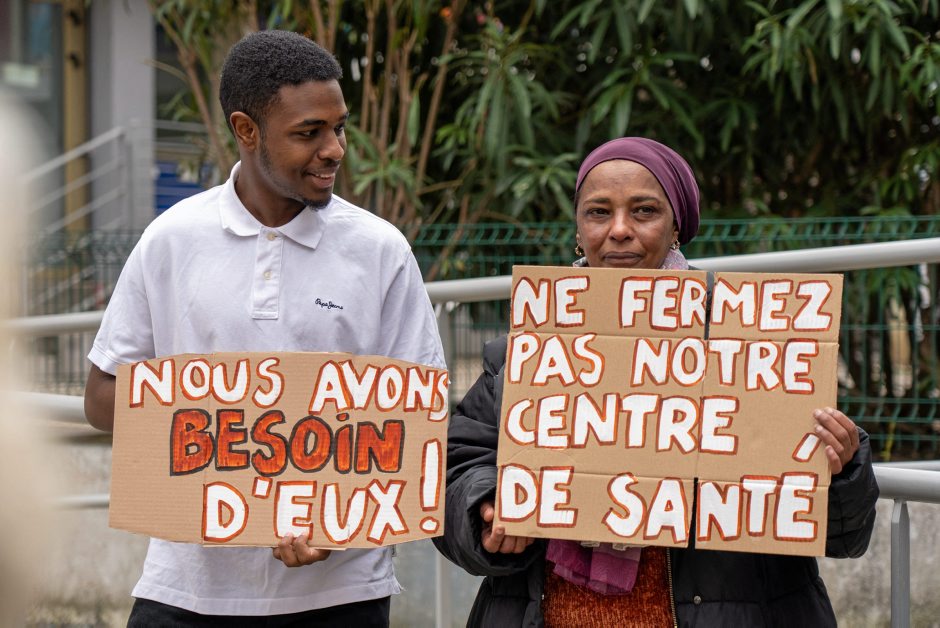 Pepe Jeans
NOUS AVONS
BESOIN
D'EUX !
NE FERMEZ
PAS NOTRE
CENTRE
DE SANTÉ